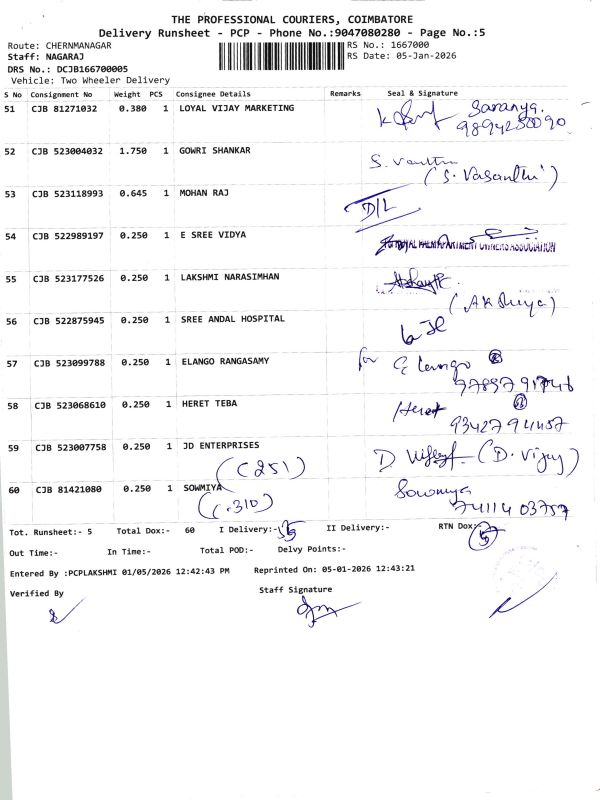 THE PROFESSIONAL COURIERS, COIMBATORE
Delivery Runsheet - PCP - Phone No.:9047080280 - Page No.:5
Route: CHERNMANAGAR RS No.: 1667000
Staff: NAGARAJ RS Date: 05-Jan-2026
DRS No.: DCJB166700005
Vehicle: Two Wheeler Delivery
S No Consignment No Weight PCS Consignee Details Remarks Seal & Signature
51 CJB 81271032 0.380 1 LOYAL VIJAY MARKETING Saranya.
52 CJB 523004032 1.750 1 GOWRI SHANKAR
(S. Vasanthi)
53 CJB 523118993 0.645 1 MOHAN RAJ D/L
54 CJB 522989197 0.250 1 E SREE VIDYA
55 CJB 523177526 0.250 1 LAKSHMI NARASIMHAN
56 CJB 522875945 0.250 1 SREE ANDAL HOSPITAL
57 CJB 523099788 0.250 1 ELANGO RANGASAMY for Elango
58 CJB 523068610 0.250 1 HERET TEBA Heret
9342794457
59 CJB 523007758 0.250 1 JD ENTERPRISES (D. Vijay)
(251)
60 CJB 81421080 0.250 1 SOWMIYA Sowmya
(310) 7411403757
Tot. Runsheet:- 5 Total Dox:- 60 I Delivery:- 55 II Delivery:- RTN Dox:- 5
Out Time:- In Time:- Total POD:- Delvy Points:-
Entered By :PCPLAKSHMI 01/05/2026 12:42:43 PM Reprinted On: 05-01-2026 12:43:21
Verified By Staff Signature